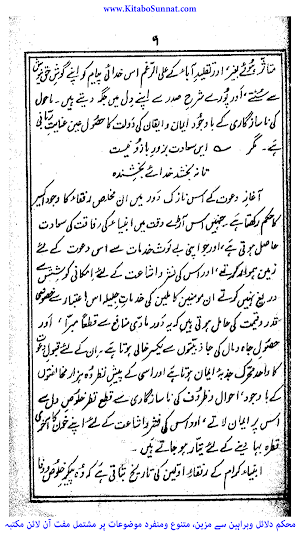 www.KitaboSunnat.com
۹
متاثر ہوئے بغیر، اور تقلیدِ آباء کے علی الرغم اس خدائی پیام کو اپنے گوشِ حق نیوش
سے سنتے، اور پورے شرحِ صدر سے اپنے دل میں جگہ دیتے ہیں۔ ماحول
کی ناسازگاری کے باوجود ایمان و ایقان کی دولت کا حصول عین عنایتِ ربانی
ہے۔ مگر ایں سعادت بزورِ بازو نیست
تا نہ بخشد خدائے بخشندہ
آغازِ دعوت کے اس نازک دور میں ان مخلص رفقاء کا وجود اکسیر
کا حکم رکھتا ہے، جنہیں اس آڑے وقت میں انبیاء کی رفاقت کی سعادت
حاصل ہوتی ہے، اور جو اپنی بے لوث خدمات سے اس دعوت کے لئے
زمین ہموار کرتے، اور اس کی نشر و اشاعت کے لئے امکانی کوشش سے
دریغ نہیں کرتے ان مومنین کاملین کی خدماتِ جلیلہ اس اعتبار سے خصوصی
قدر و قیمت کی حامل ہوتی ہیں کہ یہ دور مادی منافع سے قطعاً مبرا، اور
حصولِ جاہ و مال کی جاذبیتوں سے یکسر خالی ہوتا ہے۔ ان کے لئے قبولِ دعوت
کا واحد محرک جذبۂ ایمان ہوتا ہے اور اسی کے پیشِ نظر وہ ہزار مخالفتوں
کے باوجود، احوال و ظروف کی ناسازگاری سے قطع نظر خلوصِ دل سے
اس پر ایمان لاتے، اور اس کی نشر و اشاعت کے لئے اپنے خون کا آخری
قطرہ بہا دینے کے لئے تیار ہو جاتے ہیں۔
انبیاء کرام کے رفقاءِ اولین کی تاریخ بتاتی ہے کہ وہ پیکرِ خلوص و وفا
محکم دلائل وبراہین سے مزین، متنوع ومنفرد موضوعات پر مشتمل مفت آن لائن مکتبہ